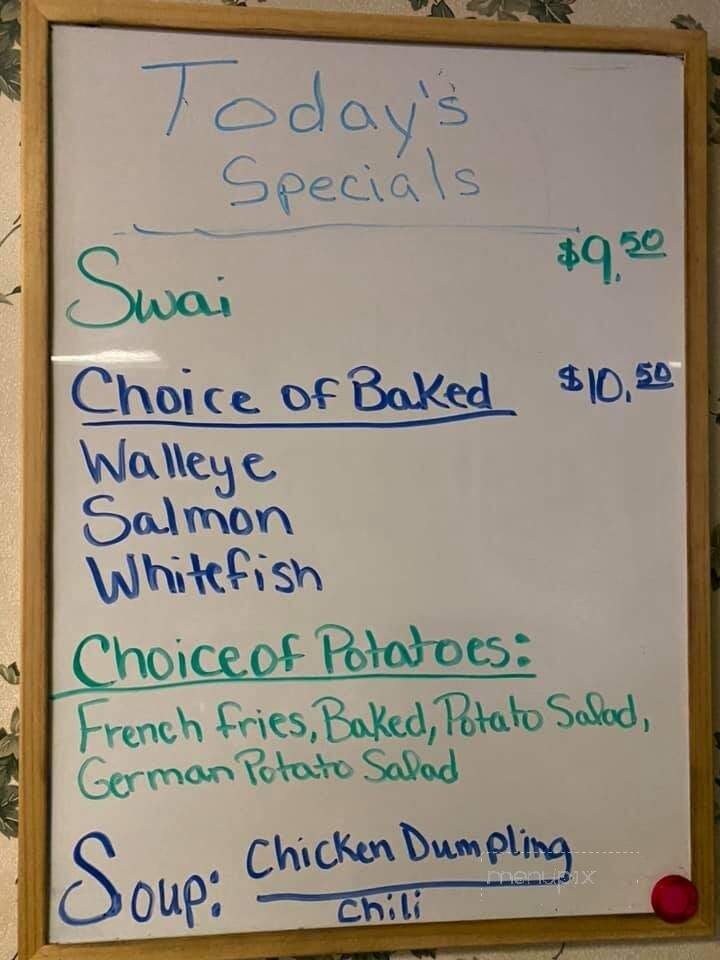 Today's
Specials
Swai $9.50
Choice of Baked $10.50
Walleye
Salmon
Whitefish
Choice of Potatoes:
French fries, Baked, Potato Salad,
German Potato Salad
Soup: Chicken Dumpling
Chili
menupix